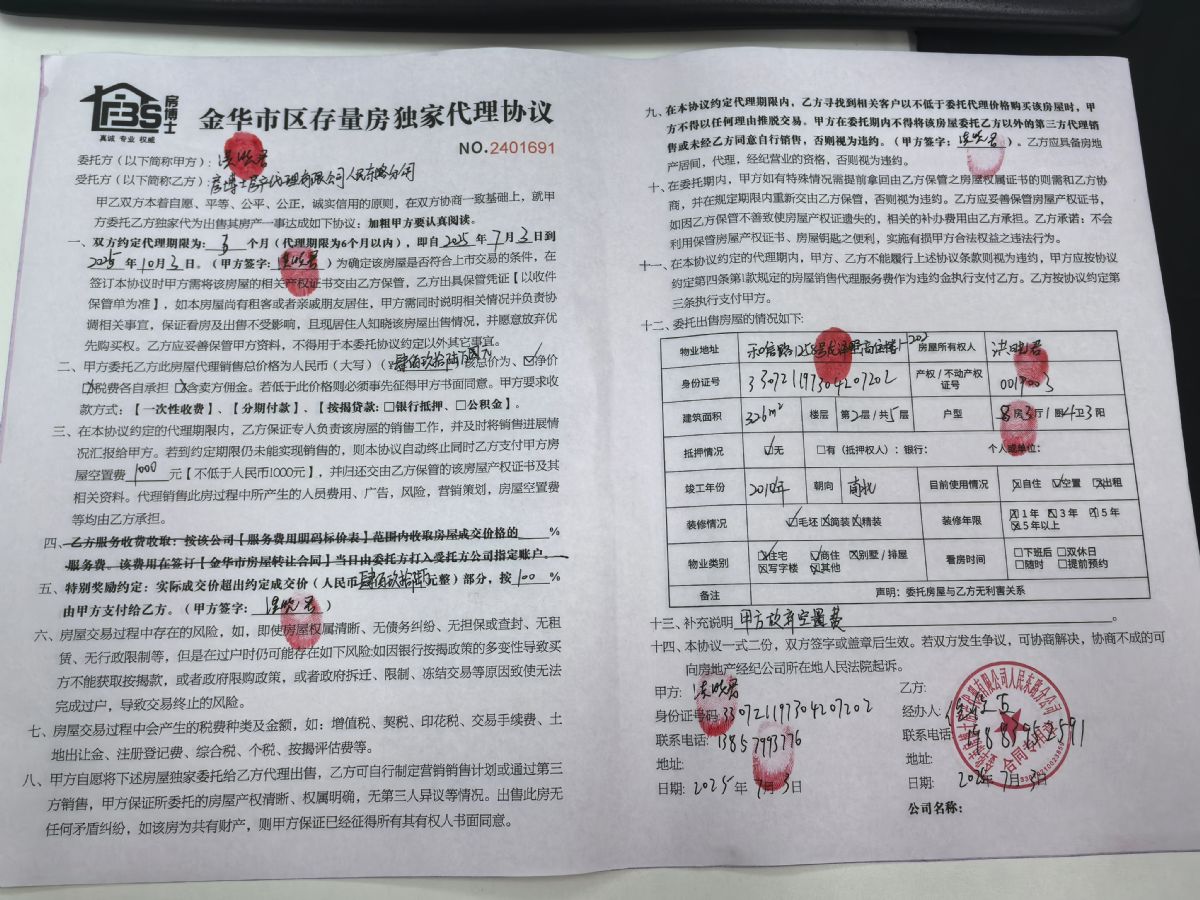 FBS
房博士
真诚 专业 权威
金华市区存量房独家代理协议
NO.2401691
委托方(以下简称甲方):
受托方(以下简称乙方):房博士房产代理有限公司人民东路分公司
甲乙双方本着自愿、平等、公平、公正,诚实信用的原则,在双方协商一致基础上,就甲
方委托乙方独家代为出售其房产一事达成如下协议:加粗甲方要认真阅读。
一、双方约定代理期限为: 3 个月(代理期限为6个月以内),即自2025年7月3日到
2025年10月3日。(甲方签字: )为确定该房屋是否符合上市交易的条件,在
签订本协议时甲方需将该房屋的相关产权证书交由乙方保管,乙方出具保管凭证【以收件
保管单为准】,如本房屋尚有租客或者亲戚朋友居住,甲方需同时说明相关情况并负责协
调相关事宜,保证看房及出售不受影响,且现居住人知晓该房屋出售情况,并愿意放弃优
先购买权。乙方应妥善保管甲方资料,不得用于本委托协议约定以外其它事宜。
二、甲方委托乙方此房屋代理销售总价格为人民币(大写) 该总价为、☑净价
税费各自承担 含卖方佣金。若低于此价格则必须事先征得甲方书面同意。甲方要求收
款方式:【一次性收费】、【分期付款】、【按揭贷款:□银行抵押、□公积金】。
三、在本协议约定的代理期限内,乙方保证专人负责该房屋的销售工作,并及时将销售进展情
况汇报给甲方。若到约定期限仍未能实现销售的,则本协议自动终止同时乙方支付甲方房
屋空置费 1000 元【不低于人民币1000元】,并归还交由乙方保管的该房屋产权证书及其
相关资料。代理销售此房过程中所产生的人员费用、广告,风险,营销策划,房屋空置费
等均由乙方承担。
四、乙方服务收费收取:按该公司【服务费用明码标价表】范围内收取房屋成交价格的 %
服务费。该费用在签订【金华市房屋转让合同】当日由委托方打入受托方公司指定账户。
五、特别奖励约定:实际成交价超出约定成交价(人民币 元整)部分,按100%
由甲方支付给乙方。(甲方签字: )
六、房屋交易过程中存在的风险,如,即使房屋权属清晰、无债务纠纷、无担保或查封、无租
赁、无行政限制等,但是在过户时仍可能存在如下风险如因银行按揭政策的多变性导致买
方不能获取按揭款,或者政府限购政策,或者政府拆迁、限制、冻结交易等原因致使无法
完成过户,导致交易终止的风险。
七、房屋交易过程中会产生的税费种类及金额,如:增值税、契税、印花税、交易手续费、土
地出让金、注册登记费、综合税、个税、按揭评估费等。
八、甲方自愿将下述房屋独家委托给乙方代理出售,乙方可自行制定营销销售计划或通过第三
方销售,甲方保证所委托的房屋产权清晰、权属明确,无第三人异议等情况。出售此房无
任何矛盾纠纷,如该房为共有财产,则甲方保证已经征得所有其有权人书面同意。
九、在本协议约定代理期限内,乙方寻找到相关客户以不低于委托代理价格购买该房屋时,甲
方不得以任何理由推脱交易。甲方在委托期内不得将该房屋委托乙方以外的第三方代理销
售或未经乙方同意自行销售,否则视为违约。(甲方签字: )乙方应具备房地
产居间,代理,经纪营业的资格,否则视为违约。
十、在委托期内,甲方如有特殊情况需提前拿回由乙方保管之房屋权属证书的则需和乙方协
商,并在规定期限内重新交由乙方保管,否则视为违约。乙方应妥善保管房屋产权证书,
如因乙方保管不善致使房屋产权证遗失的,相关的补办费用由乙方承担。乙方承诺:不会
利用保管房屋产权证书、房屋钥匙之便利,实施有损甲方合法权益之违法行为。
十一、在本协议约定的代理期内,甲方、乙方不能履行上述协议条款则视为违约,甲方应按协议
约定第四条第1款规定的房屋销售代理服务费作为违约金执行支付乙方。乙方按协议约定第
三条执行支付甲方。
十二、委托出售房屋的情况如下:
物业地址 1258号 1-202 房屋所有权人 洪晓君
身份证号 330721197304207202 产权/不动产权证号
建筑面积 326m² 楼层 第2层/共5层 户型 房3厅1厨4卫3阳
抵押情况 ☑无 □有(抵押权人):银行: 个人或单位:
竣工年份 2010年 朝向 南北 目前使用情况 自住 ☑空置 出租
装修情况 ☑毛坯 简装 精装 装修年限 1年 3年 5年 5年以上
物业类别 住宅 商住 别墅/排屋 写字楼 其他 看房时间 □下班后 □双休日 □随时 □提前预约
备注 声明:委托房屋与乙方无利害关系
十三、补充说明 甲方放弃空置费。
十四、本协议一式二份,双方签字或盖章后生效。若双方发生争议,可协商解决,协商不成的可
向房地产经纪公司所在地人民法院起诉。
甲方: 乙方:
身份证号码 330721197304207202 经办人:
联系电话: 13857993776 联系电话:
地址: 地址:
日期: 2025年7月3日 日期: 2025年7月3日
公司名称:
合同专用章